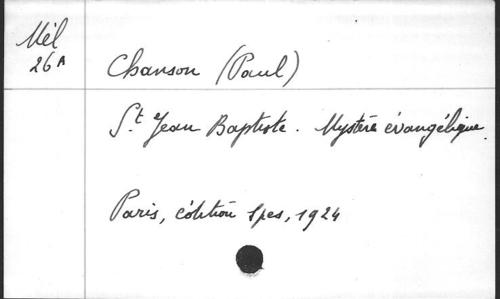 Mél
26A
Chanson (Paul)
St Jean Baptiste. Mystère évangélique.
Paris, édition Spes, 1924